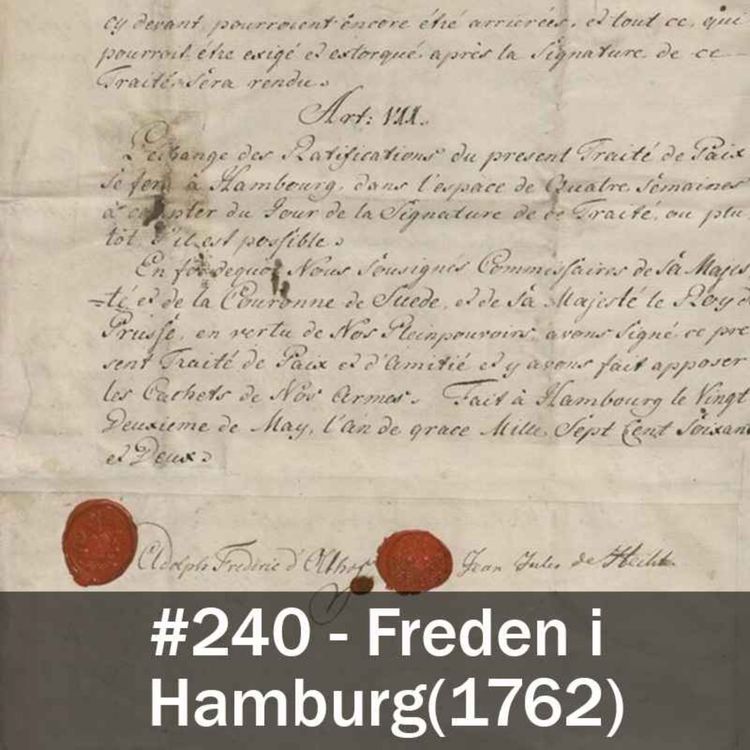 cy devant, pourroient encore été arrierées, et tout ce, qui
pourroit être exigé et extorqué, après la Signature de ce
Traité, Sera rendu.
Art: VII.
L'echange des Ratifications du present Traité de Paix
se fera à Hambourg, dans l'espace de Quatre Semaines
à compter du Jour de la Signature de ce Traité, ou plu
tôt, s'il est possible.
En foi de quoi Nous Sousignés Commissaires de Sa Majes
=té et de la Couronne de Suede, et de Sa Majesté le Roy d
Prusse, en vertu de Nos Pleinpouvoirs, avons Signé ce pre
sent Traité de Paix et d'Amitié et y avons fait apposer
les Cachets de Nos Armes. Fait à Hambourg le Vingt
Deuxieme de May, l'an de grace Mille, Sept Cent Soixan
et Deux.
Adolph Frederic d'Olthof Jean Jules de Hecht.
#240 - Freden i
Hamburg(1762)